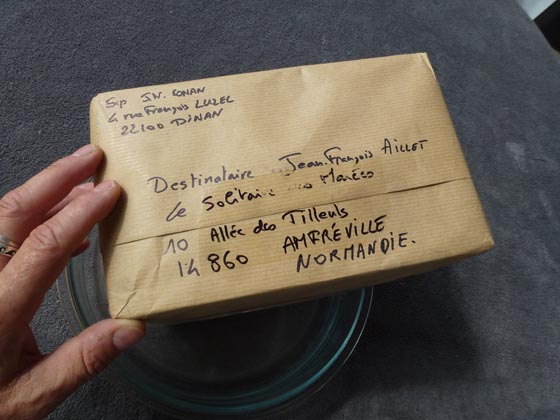 Exp JN. CONAN
4 rue François LUZEL
22100 DINAN
Destinataire Jean-François AILLET
Le Solitaire des Marées
10 Allée des Tilleuls
14 860 AMFRÉVILLE
NORMANDIE.